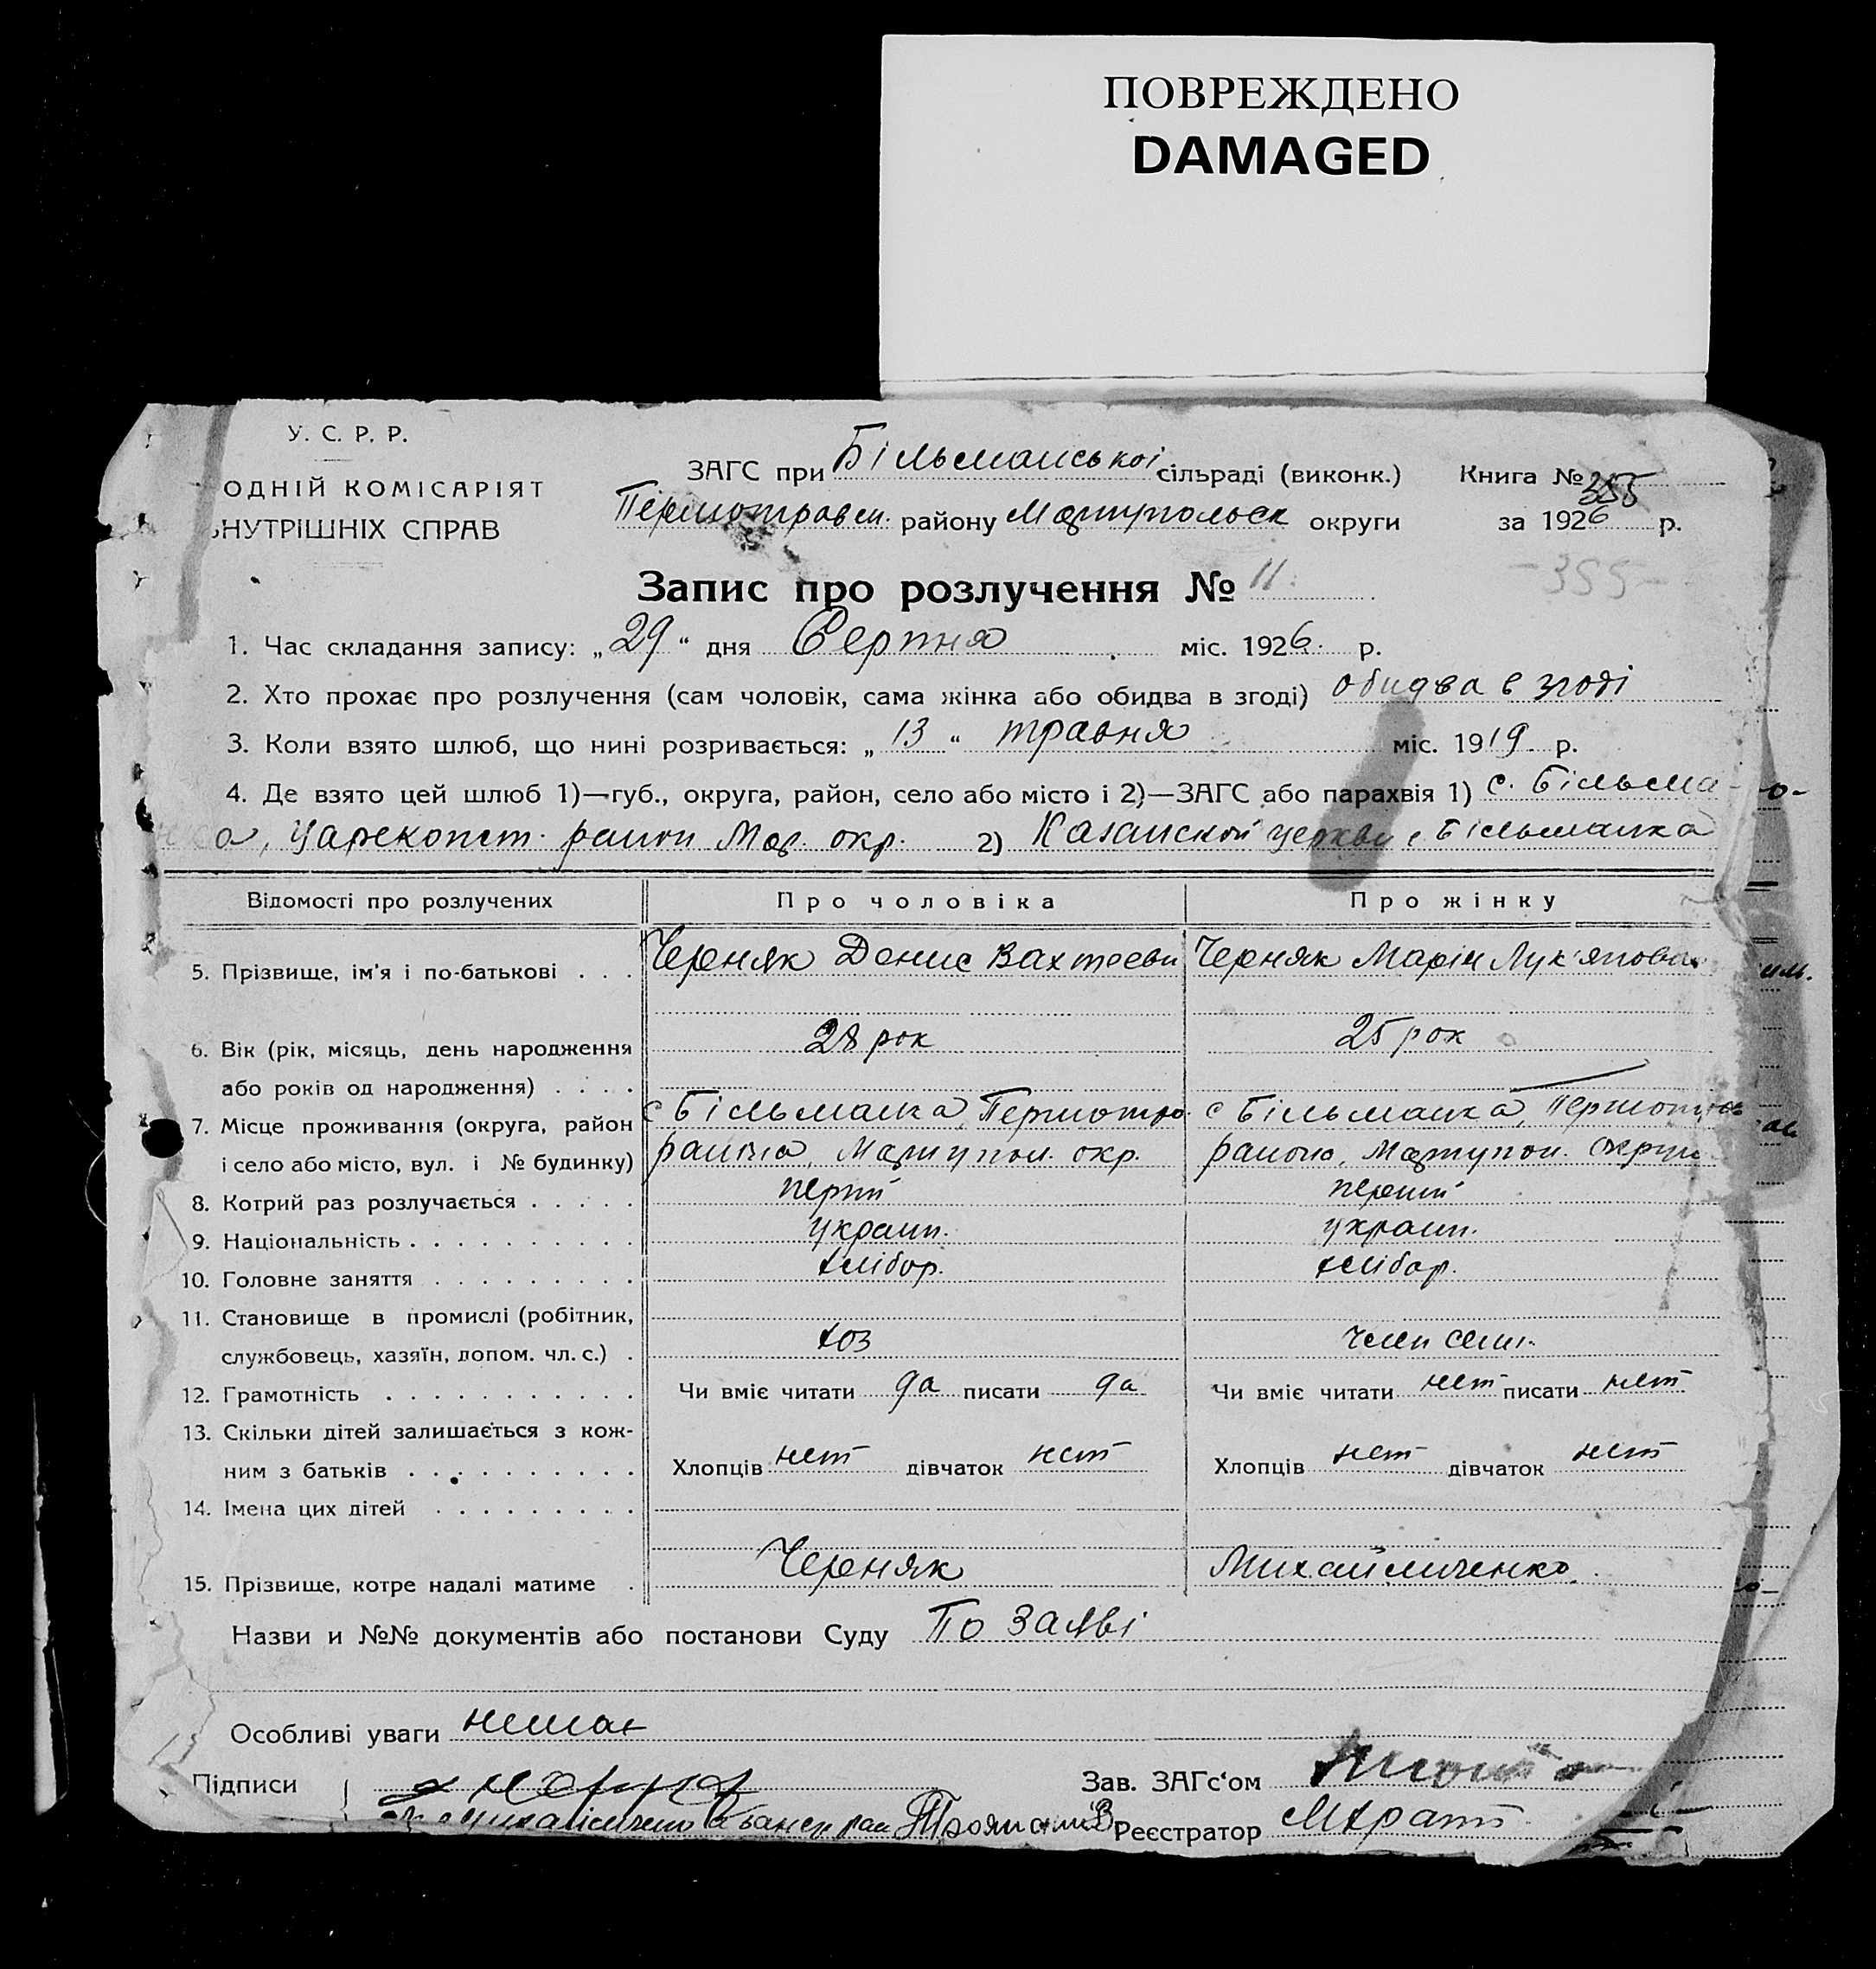 ПОВРЕЖДЕНО
DAMAGED
У. С. Р. Р.
ОДНІЙ КОМІСАРІЯТ
ВНУТРІШНІХ СПРАВ
ЗАГС при Більманської сільраді (виконк.) Книга № 355
Першотравен. району Маріупольск округи за 1926 р.
-355-
Запис про розлучення № 11.
1. Час складання запису: „29“ дня Серпня міс. 1926. р.
2. Хто прохає про розлучення (сам чоловік, сама жінка або обидва в згоді) обидва в згоді
3. Коли взято шлюб, що нині розривається: „13“ травня міс. 1919. р.
4. Де взято цей шлюб 1)—губ., округа, район, село або місто і 2)—ЗАГС або парахвія 1) с. Більма-
нка, Царекопст. район Мар. окр. 2) Казанской церкви с Більманка
Відомості про розлучених Про чоловіка Про жінку
5. Прізвище, ім'я і по-батькові . . . Черняк Денис Черняк Марія Лук'янова
6. Вік (рік, місяць, день народження 28 рок 25 рок
або років од народження) . . . .
7. Місце проживання (округа, район с Більманка, Першотро. с Більманка, Першотра
і село або місто, вул. і № будинку) району, Маріупол. окр. району, Маріупол. округи
8. Котрий раз розлучається . . . . . перший перший
9. Національність . . . . . . . . . . україн. україн.
10. Головне заняття . . . . . . . . . хлібор. хлібор.
11. Становище в промислі (робітник,
службовець, хазяїн, допом. чл. с.) . хоз член сем.
12. Грамотність . . . . . . . . . . . Чи вміє читати да писати да Чи вміє читати нет писати нет
13. Скільки дітей залишається з кож-
ним з батьків . . . . . . . . . . Хлопців нет дівчаток нет Хлопців нет дівчаток нет
14. Імена цих дітей . . . . . . . . .
15. Прізвище, котре надалі матиме . Черняк Михайличенко.
Назви и №№ документів або постанови Суду По заяві
Особливі уваги немає
Підписи Зав. ЗАГс‘ом
Реєстратор